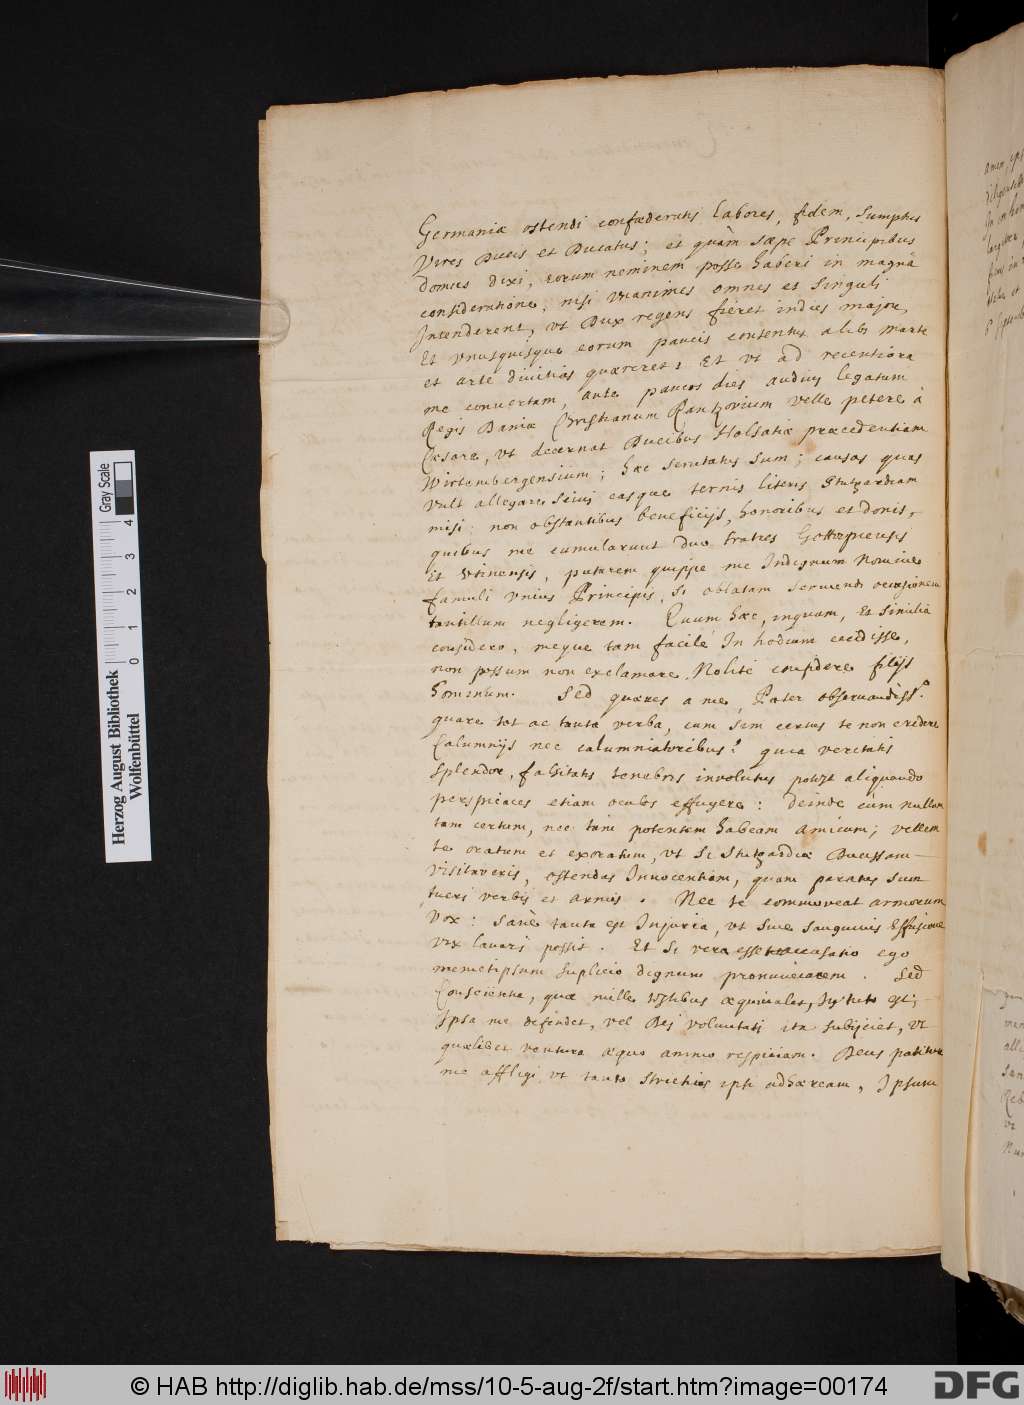 Germaniæ ostendi confœderatis labores, fidem, Sumptus
Vires Ducis et Ducatus; et quàm sæpe Principibus
domus dixi, eorum neminem posse haberi in magnâ
consideratione, nisi Vnanimes omnes et Singuli
Intenderent, vt Dux regens fieret indies major,
Et vnusquisque eorum paucis contentus alibi marte
et arte divitias quæreret: Et vt ad recentiora
me convertam, ante paucos dies audivj legatum
Regis Daniæ Christianum Rantzovium velle petere à
Cæsare, vt decernat Ducibus Holsatiæ præcedentiam
Wirtembergensium; hæc scrutatus Sum; causas quas
vult allegare Scivj easque ternis literis Stutgardiam
misi: non obstantibus beneficijs, honoribus et donis,
quibus me cumularunt duo fratres Gottorpiensis
Et Vtinensis, putarem quippe me Indignum Nomine
famuli vnius Principis, Si oblatam Serviendi occasionem
tantillum negligerem. Quum hæc, inquam, Et Similia
considero, meque tam facilè In hodium cecidisse,
non possum non exclamare Nolite confidere filijs
hominum. Sed quæres a me, Pater observandiss.e
quare tot ac tanta verba, cum Sim certus te non credere
Calumnijs nec calumniatoribus? quia veritatis
Splendor, falsitatis tenebris involutus potest aliquando
perspicaces etiam oculos effugere: deinde cùm nullum
tam certum, nec tam potentem habeam amicum; vellem
te oratum et exoratum, vt Si Stutgardiæ Ducissam
visitaveris, ostendas Innocentiam, quam paratus Sum
tueri verbis et armis. Nec te commoveat armorum
vox: Sanè tanta est Injuria, vt Sine Sanguinis Effusione
vix lavari possit. Et Si vera esset accusatio ego
memetipsum Suplicio dignum pronunciarem. Sed
Conscientia, quæ mille testibus æquivalet,
Ipsa me defendet, vel Dei voluntati ita Subijciet, vt
quælibet ventura æquo animo respiciam. Deus patitur
me affligi vt tanto Strictius ipsi adhæream, Ipsum
Herzog August Bibliothek
Wolfenbüttel
Gray Scale
0 1 2 3 4
© HAB http://diglib.hab.de/mss/10-5-aug-2f/start.htm?image=00174
DFG